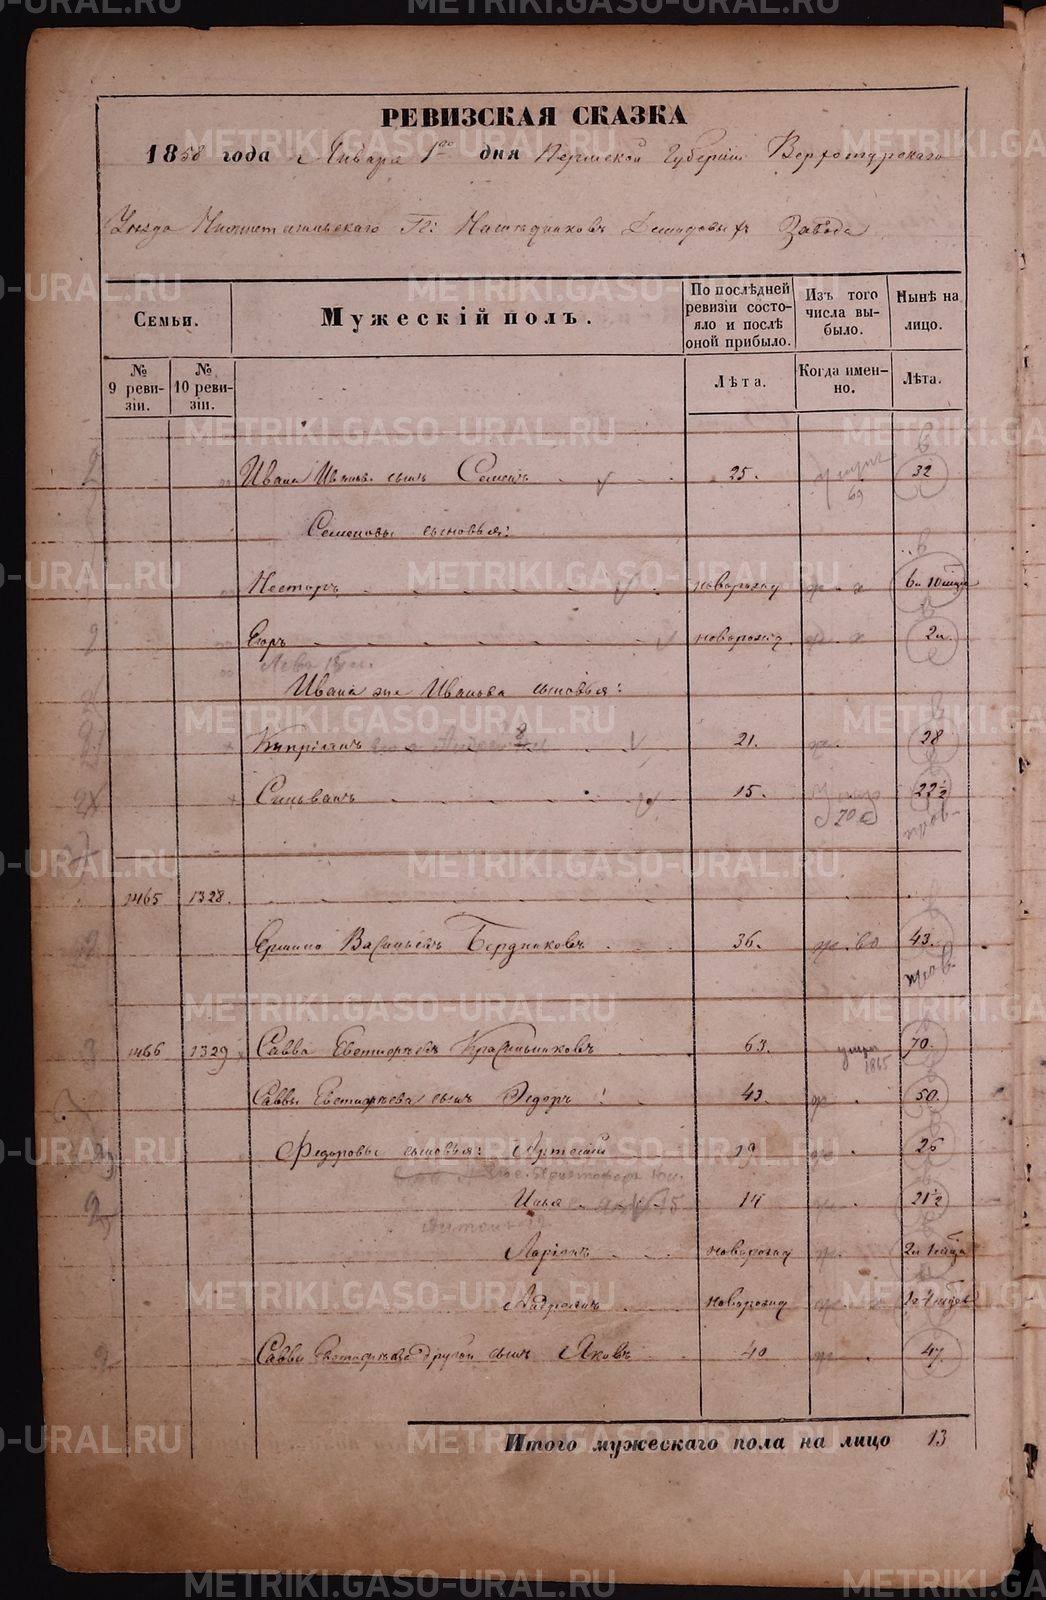 РЕВИЗСКАЯ СКАЗКА
1858 года Января 1го дня Пермской Губерніи Верхотурскаго
Уезда Нижнетагильскаго Гг: Наследниковъ Демидовыхъ Завода
Семьи.
Мужескій полъ.
По послѣдней ревизіи состояло и послѣ оной прибыло.
Изъ того числа выбыло.
Нынѣ на лицо.
№ 9 ревизіи.
№ 10 ревизіи.
Лѣта.
Когда именно.
Лѣта.
Ивана Иванова сынъ Семенъ 25. умеръ 69 32
Семеновы сыновья:
Несторъ новорожд ж. 6 и 10 мѣся
Егоръ новорожд. ж. 2 л.
Левъ
Ивана же Иванова сыновья:
Кипріянъ 21. ж. 28
Сильванъ 15. 70 22½
1465 1328.
Ермило Васильевъ Бердниковъ 36. 43.
1466 1329 Савва Евстифѣевъ Красильниковъ 63. умеръ 1865 70
Саввы Евстифѣева сынъ Федоръ 43. ж. 50.
Федоровы сыновья: Артемій 19 ж. 26
Илья 14 ж. 21½
Антонъ
Ларіонъ новорожд ж. 2 и 1 мѣся
Андреянъ новорожд
Саввы Евстифѣева другой сынъ Яковъ 40 ж. 47.
Итого мужескаго пола на лицо 13
METRIKI.GASO-URAL.RU